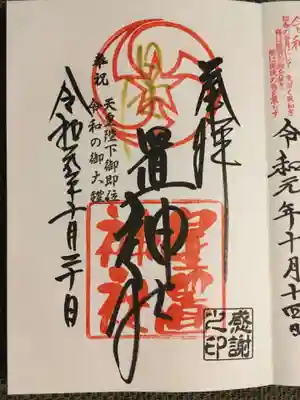 奉拝
星置神社
星置
神社
奉祝 天皇陛下御即位
令和の御大禮
令和元年十月二十日
感謝
之印
令和
令和元年十月十四日